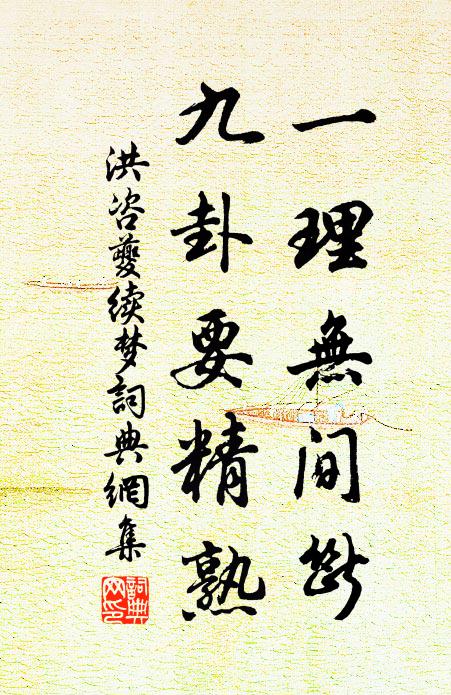 一理無间斷
九卦要精熟
洪咨夔续梦詞典網集
詞典网印